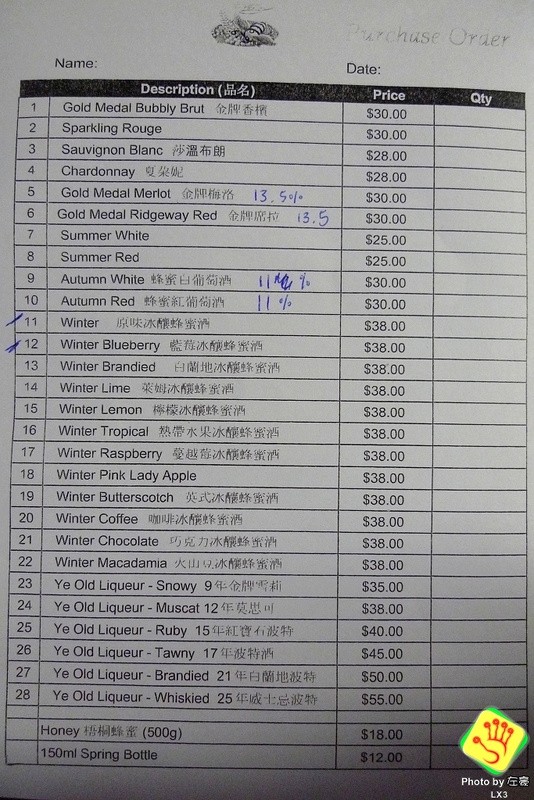 Purchase Order
Name: Date:
Description (品名) Price Qty
1 Gold Medal Bubbly Brut 金牌香檳 $30.00
2 Sparkling Rouge $30.00
3 Sauvignon Blanc 莎溫布朗 $28.00
4 Chardonnay 夏朵妮 $28.00
5 Gold Medal Merlot 金牌梅洛 13.5% $30.00
6 Gold Medal Ridgeway Red 金牌席拉 13.5 $30.00
7 Summer White $25.00
8 Summer Red $25.00
9 Autumn White 蜂蜜白葡萄酒 11 % $30.00
10 Autumn Red 蜂蜜紅葡萄酒 11 % $30.00
11 Winter 原味冰釀蜂蜜酒 $38.00
12 Winter Blueberry 藍莓冰釀蜂蜜酒 $38.00
13 Winter Brandied 白蘭地冰釀蜂蜜酒 $38.00
14 Winter Lime 萊姆冰釀蜂蜜酒 $38.00
15 Winter Lemon 檸檬冰釀蜂蜜酒 $38.00
16 Winter Tropical 熱帶水果冰釀蜂蜜酒 $38.00
17 Winter Raspberry 蔓越莓冰釀蜂蜜酒 $38.00
18 Winter Pink Lady Apple $38.00
19 Winter Butterscotch 英式冰釀蜂蜜酒 $38.00
20 Winter Coffee 咖啡冰釀蜂蜜酒 $38.00
21 Winter Chocolate 巧克力冰釀蜂蜜酒 $38.00
22 Winter Macadamia 火山豆冰釀蜂蜜酒 $38.00
23 Ye Old Liqueur - Snowy 9年金牌雪莉 $35.00
24 Ye Old Liqueur - Muscat 12年莫思可 $38.00
25 Ye Old Liqueur - Ruby 15年紅寶石波特 $40.00
26 Ye Old Liqueur - Tawny 17年波特酒 $45.00
27 Ye Old Liqueur - Brandied 21年白蘭地波特 $50.00
28 Ye Old Liqueur - Whiskied 25年威士忌波特 $55.00
Honey 梧桐蜂蜜 (500g) $18.00
150ml Spring Bottle $12.00
Photo by 左
LX3